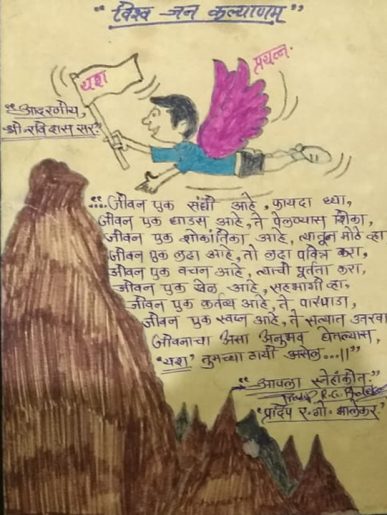 “विश्व जन कल्याणम्”
यश
प्रयत्न.
“आदरणीय,
श्री रविदास सर.”
“...जीवन एक संधी आहे, फायदा घ्या,
जीवन एक धाडस आहे, ते पेलण्यास शिका,
जीवन एक शोकांतिका आहे, त्यातून मोठे व्हा
जीवन एक लढा आहे, तो लढा पवित्र करा,
जीवन एक वचन आहे, त्याची पूर्तता करा,
जीवन एक खेळ आहे, सहभागी व्हा,
जीवन एक कर्तव्य आहे, ते पारपाडा,
जीवन एक स्वप्न आहे, ते सत्यात उतरवा
जीवनाचा असा अनुभव घेतल्यास,
‘यश’ तुमच्या ठायी असेल...||”
“आपला स्नेहांकीत.”
‘प्रदिप ए. गो. भालेकर.’